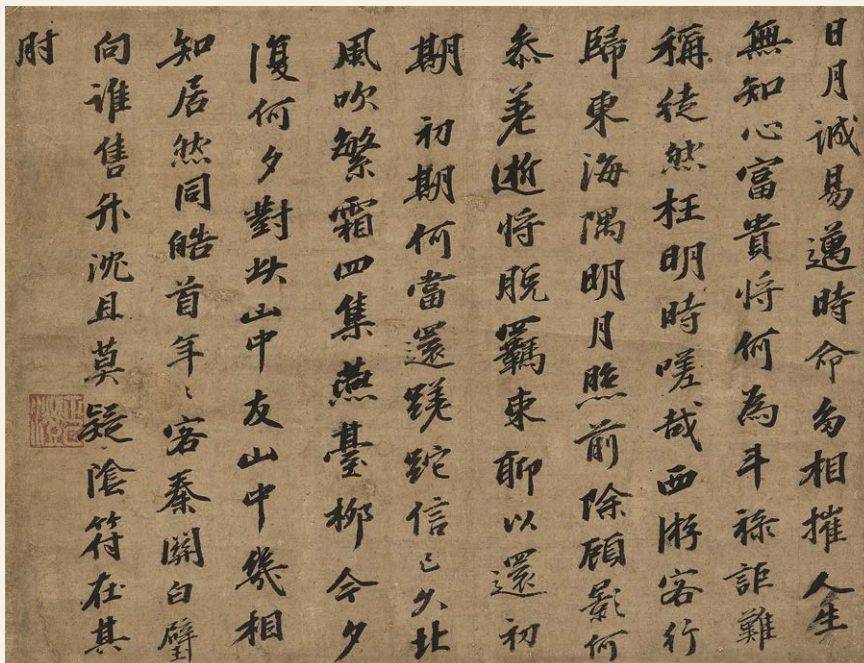 日月誠易邁時命多相摧人生
無知心富貴將何為斗祿詎難
稱徒然枉明時嗟哉西游客行
歸東海隅明月照前除顧影何
參差逝將脫羈束聊以還初
期　初期何當還蹉跎信已久北
風吹繁霜四集燕臺柳今夕
復何夕對此山中友山中幾相
知居然同皓首年〻客秦關白璧
向誰售升沈且莫疑陰符在其
肘